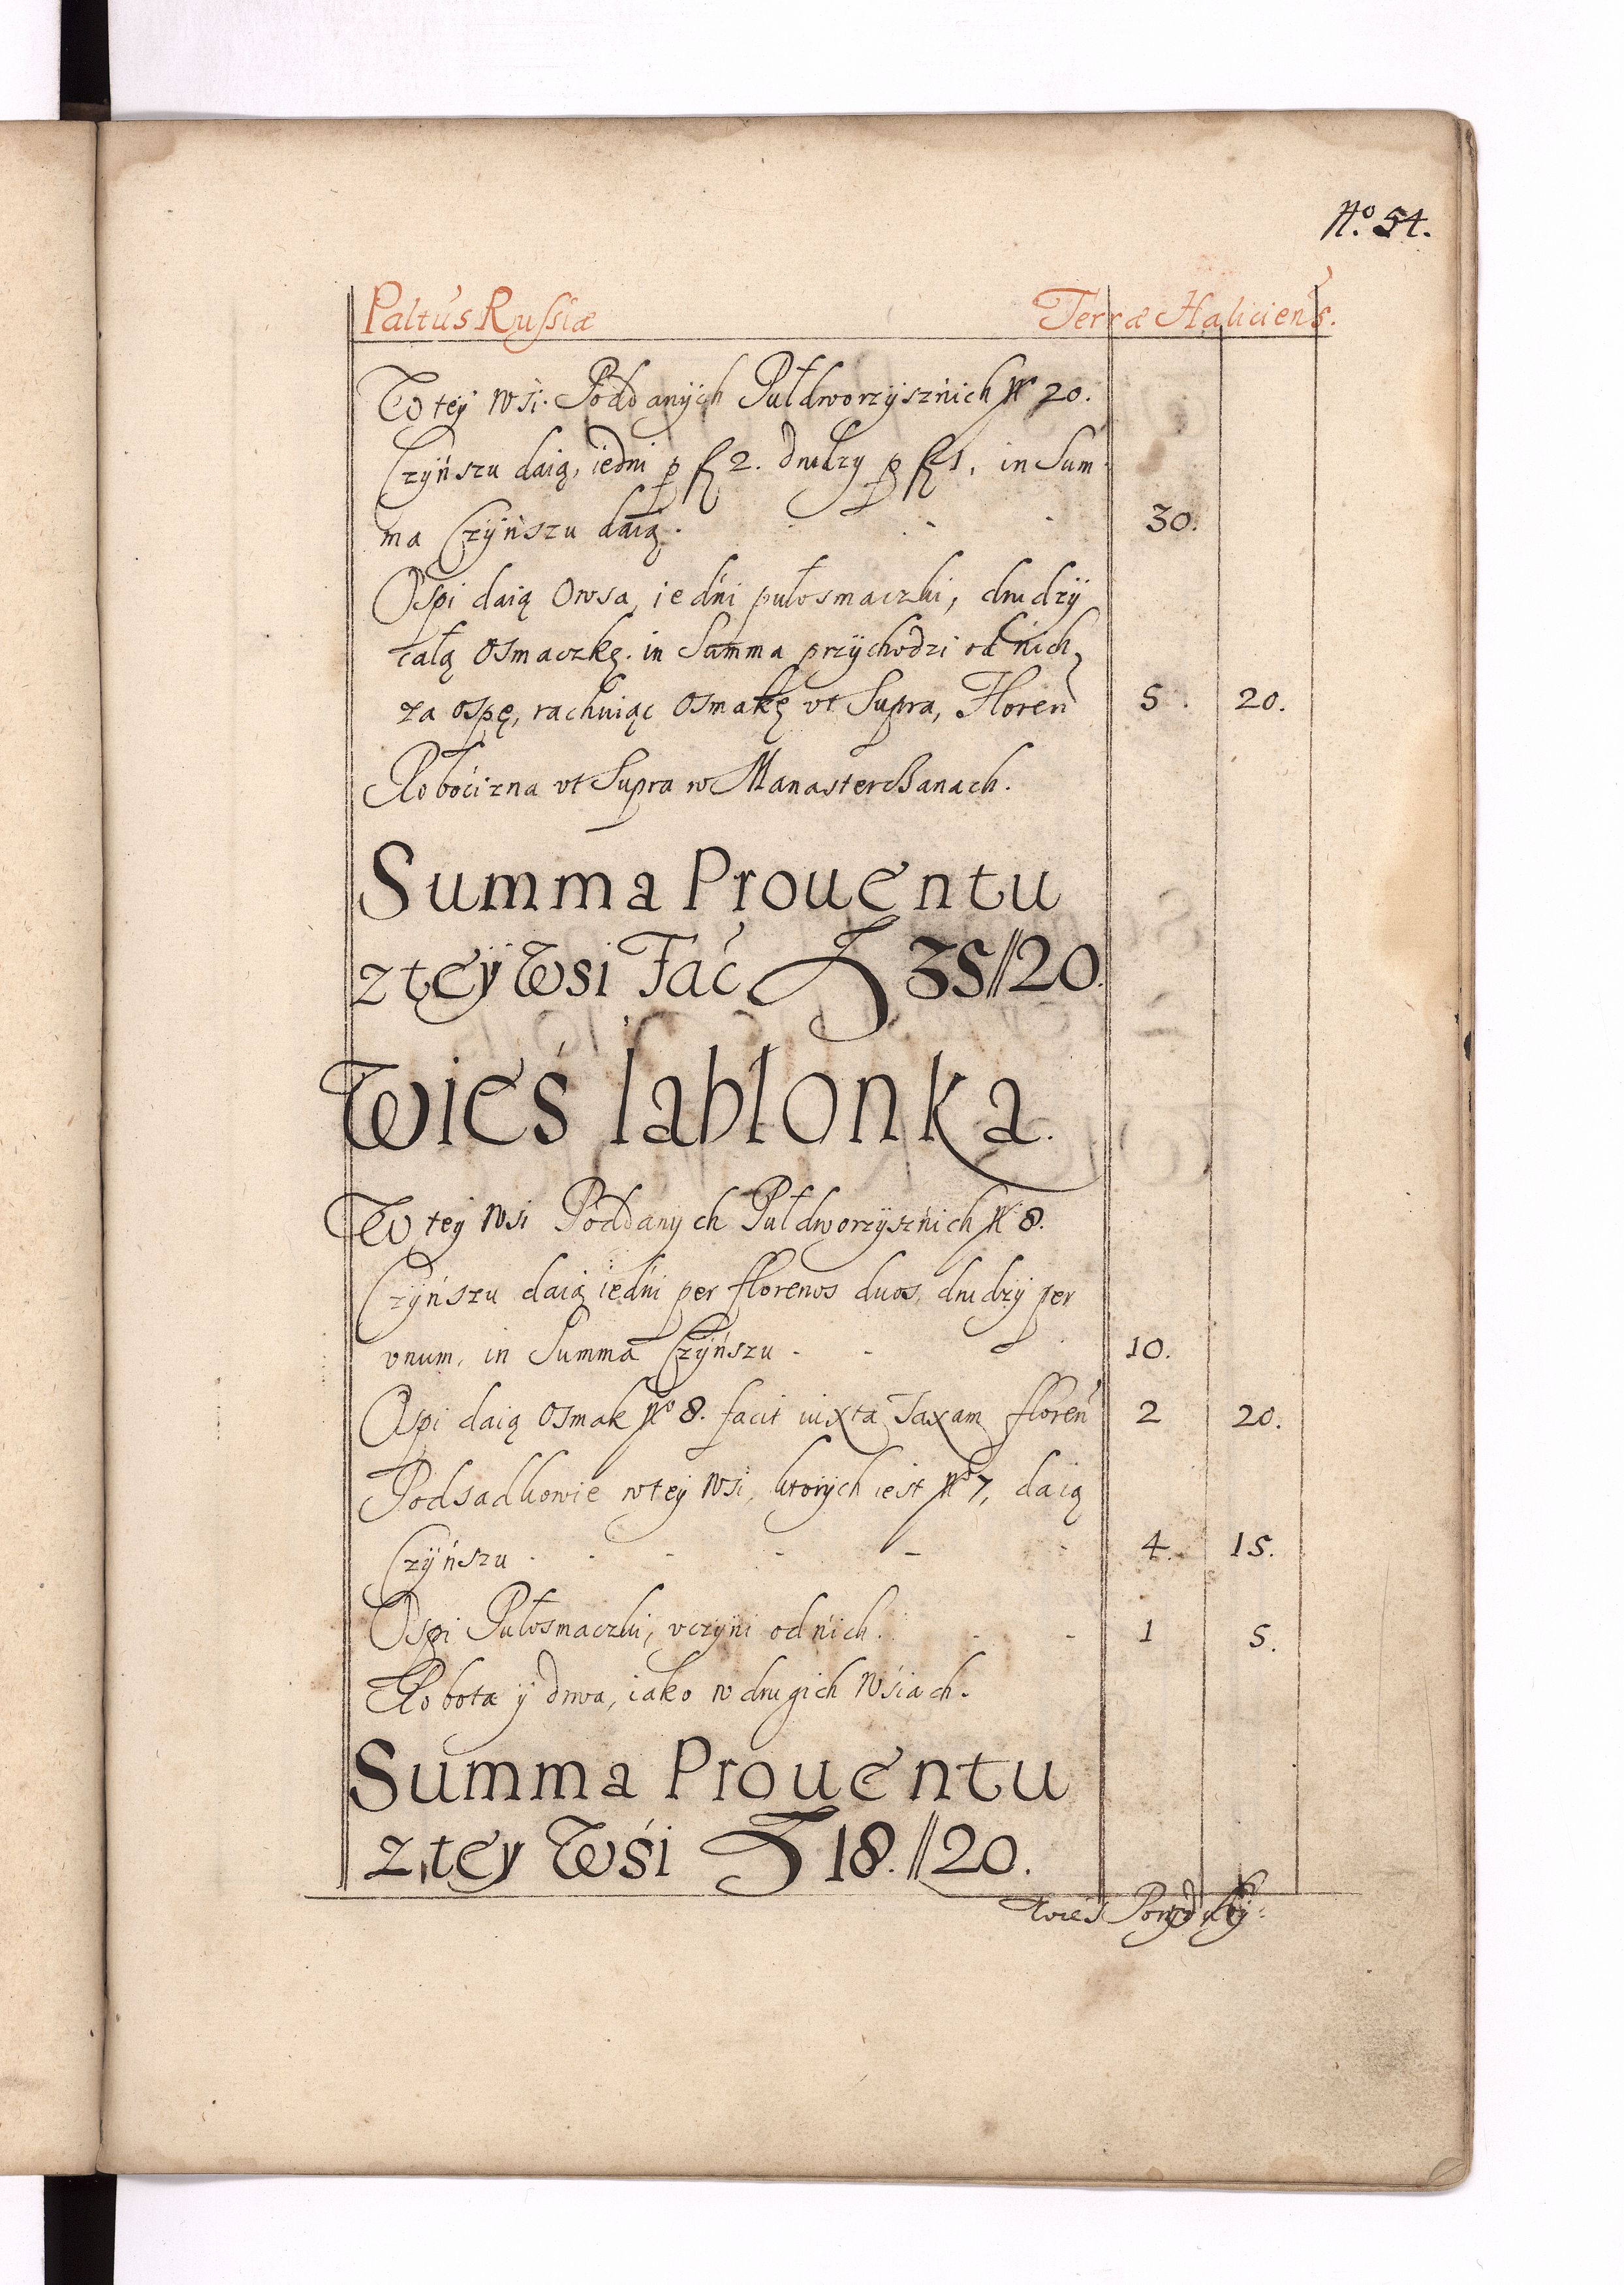 No. 54.
Paltus Russiæ Terræ Haliciens.
W tey wsi Poddanych Pułdworzysznich No 20.
Czÿnszu daią, iedni p fl 2. drudzy p fl 1. in Sum
ma Czÿnszu daią. 30.
Ospi daią Owsa, iedni pułosmaczki, drudzÿ
całą Osmaczkę. in Summa przÿchodzi od nich,
za ospę, rachuiąc Osmakę vt Supra, Floren 5. 20.
Robocizna vt Supra w Manasterczanach.
Summa Prouentu
z tey Wsi Fac fl 35//20.
Wieś Iablonka.
W tey wsi Poddanych Pułdworzÿsznich No 8.
Czÿnszu daią iedni per florenos duos, drudzÿ per
vnum, in Summa Czÿnszu 10.
Ospi daią Osmak No 8. facit iuxta Taxam floren 2 20.
Podsadkowie w tey wsi, ktorÿch iest No 7, daią
Czÿnszu 4. 15.
Ospi Pułosmaczki, vczÿni od nich. 1 5.
Robota ÿ drwa, iako w drugich Wsiach.
Summa Prouentu
z tey Wśi fl 18.//20.
Wieś